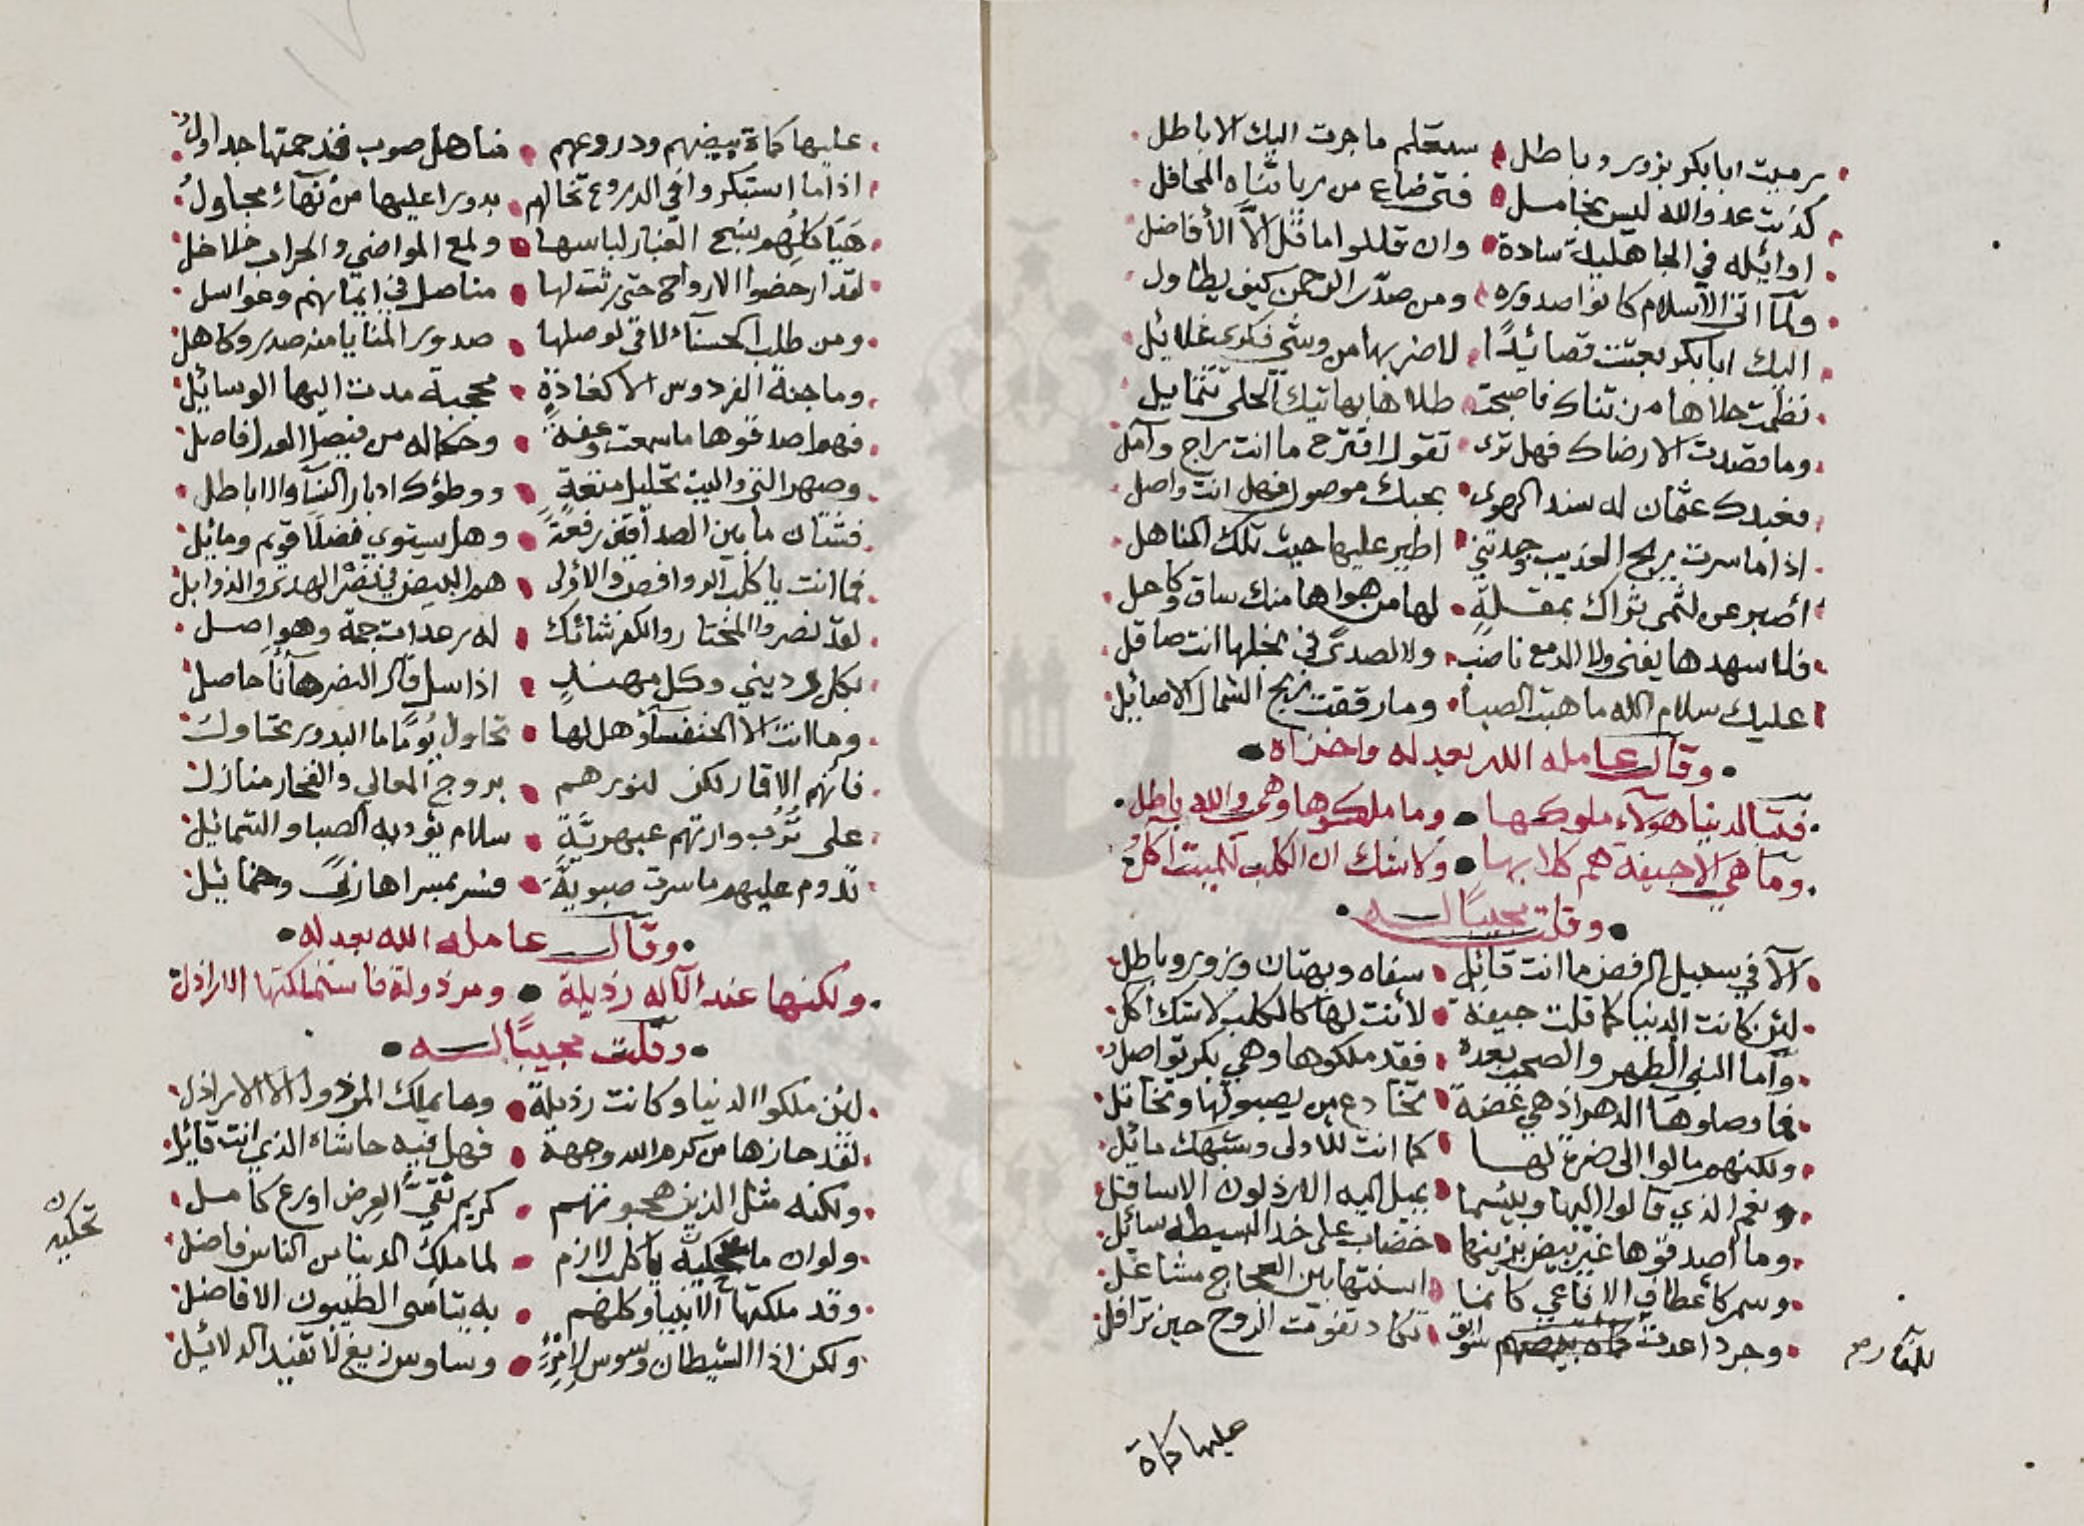 رميت ابا بكر بزور وباطل سيعلم ما جرت اليك الاباطل
كذبت عدو الله ليس بخامل فتى ضاع من ريا ثناه المحافل
اوائله في الجاهلية سادة وان قللوا ما قل الا الأفاضل
ولما اتى الاسلام كانوا صدوره ومن صدر الرحمن كيف يطاول
اليك ابا بكر بعثت قصائدًا لاضربها من وشي فكري غلائل
نظمت حلاها من ثناك فاصبحت طلاها بهاتيك الحلى تتمايل
وما قصدت الا رضاك فهل ترى تقول اقترح ما انت راج وآمل
فعبدك عثمان له سند الهوى بحبك موصول فهل انت واصل
اذا ما سرت ريح العذيب وجدتني اطير عليها حيث تلك المناهل
أصبر عن لثمي ثراك بمقلة لها من هواها منك ساق وكاحل
فلا سهدها يفنى ولا الدمع ناضب ولا الصدى في بخلها انت صاقل
عليك سلام الله ما هبت الصبا وما رققت ريح الشمال الاصائل
وقال عامله الله بعدله واخزاه
فتبا لدنيا هؤلاء ملوكها وما ملكوها وهي والله باطل
وما هي الا جيفة هم كلابها ولا شك ان الكلب للميت آكل
وقلت مجيبًا له
ألا في سبيل الرفض ما انت قائل سفاه وبهتان وزور وباطل
لئن كانت الدنيا كما قلت جيفة لأنت لها كالكلب لا شك آكل
وأما النبي الطهر والصحب بعده فقد ملكوها وهي بكر تواصل
فما وصلوها الدهر اذ هي غضة تخادع من يصبو لها وتخاتل
ولكنهم مالوا الى ضرة لها كما انت للاولى وشبهك مائل
ونعم الذي مالوا اليها وبئسما يميل اليه الارذلون الاسافل
وما أصدقوها غير بيض يزينها خضاب على خد البسيطة سائل
وسمر كأعطاف الافاعي كانما اسنتها بين العجاج مشاعل
وجرد اعدت سوابق تكاد تفوت الروح حين تراقل
للقا
عليها كماة
عليها كماة بيضهم ودروعهم مناهل صوب قد حمتها جداول
اذا ما استبكروا في الدروع تخالهم بدورا عليها من نهاء مجاول
هياكلهم نسج الغبار لباسها ولمع المواضي والحراب خلاخل
لقد ارخصوا الارواح حتى رثت لها مناصل في ايمانهم وعواسل
ومن طلب الحسناء لاقى لوصلها صدور المنايا منه صدر وكاهل
وما جنة الفردوس الا كغادة محجبة مدت اليها الوسائل
فهم اصدقوها ما سمعت وعفة وحكما له من فيصل العدل فاصل
وصهر النبي والبيت تحليل متعة ووطؤك ادبار النسا والاباطل
فشتان ما بين الصداقين رفعة وهل يستوي فضلا قويم ومائل
فما انت يا كلب الروافض والاولى هم البيض في نصر الهدى والذوابل
لقد نصروا المختار والكفر شائك له رعدات جمة وهواصل
بكل رديني وكل مهند اذا سل فالنصر هاتا حاصل
وما انت الا الخنفساء وهل لها تحاول يومًا ما البدور تحاول
فانهم الاقمار لكن لنورهم بروج المعالي والفخار منازل
على ترب وارتهم عبهرية سلام يؤديه الصبا والشمائل
تدوم عليهم ما سرت صبوية فسر بمسراها ربى وخمائل
وقال عامله الله بعدله
ولكنها عند الآله رذيلة ومرذولة فاستملكتها الاراذل
وقلت مجيبًا له
لئن ملكوا الدنيا وكانت رذيلة وما يملك المرذول الا الاراذل
لقد حازها من كرم الله وجهه فهل فيه حاشاه الذي انت قائل
ولكنه مثل الذين هجوتهم كريم نقي العرض اورع كامل
ولو ان ما تحكيه يا كلب لازم لما ملك الدنيا من الناس فاضل
تحكيه
وقد ملكتها الانبيا وكلهم به يتاسى الطيبون الافاضل
ولكن اذا الشيطان وسوس لامرئ وساوس زيغ لا تفيد الدلائل